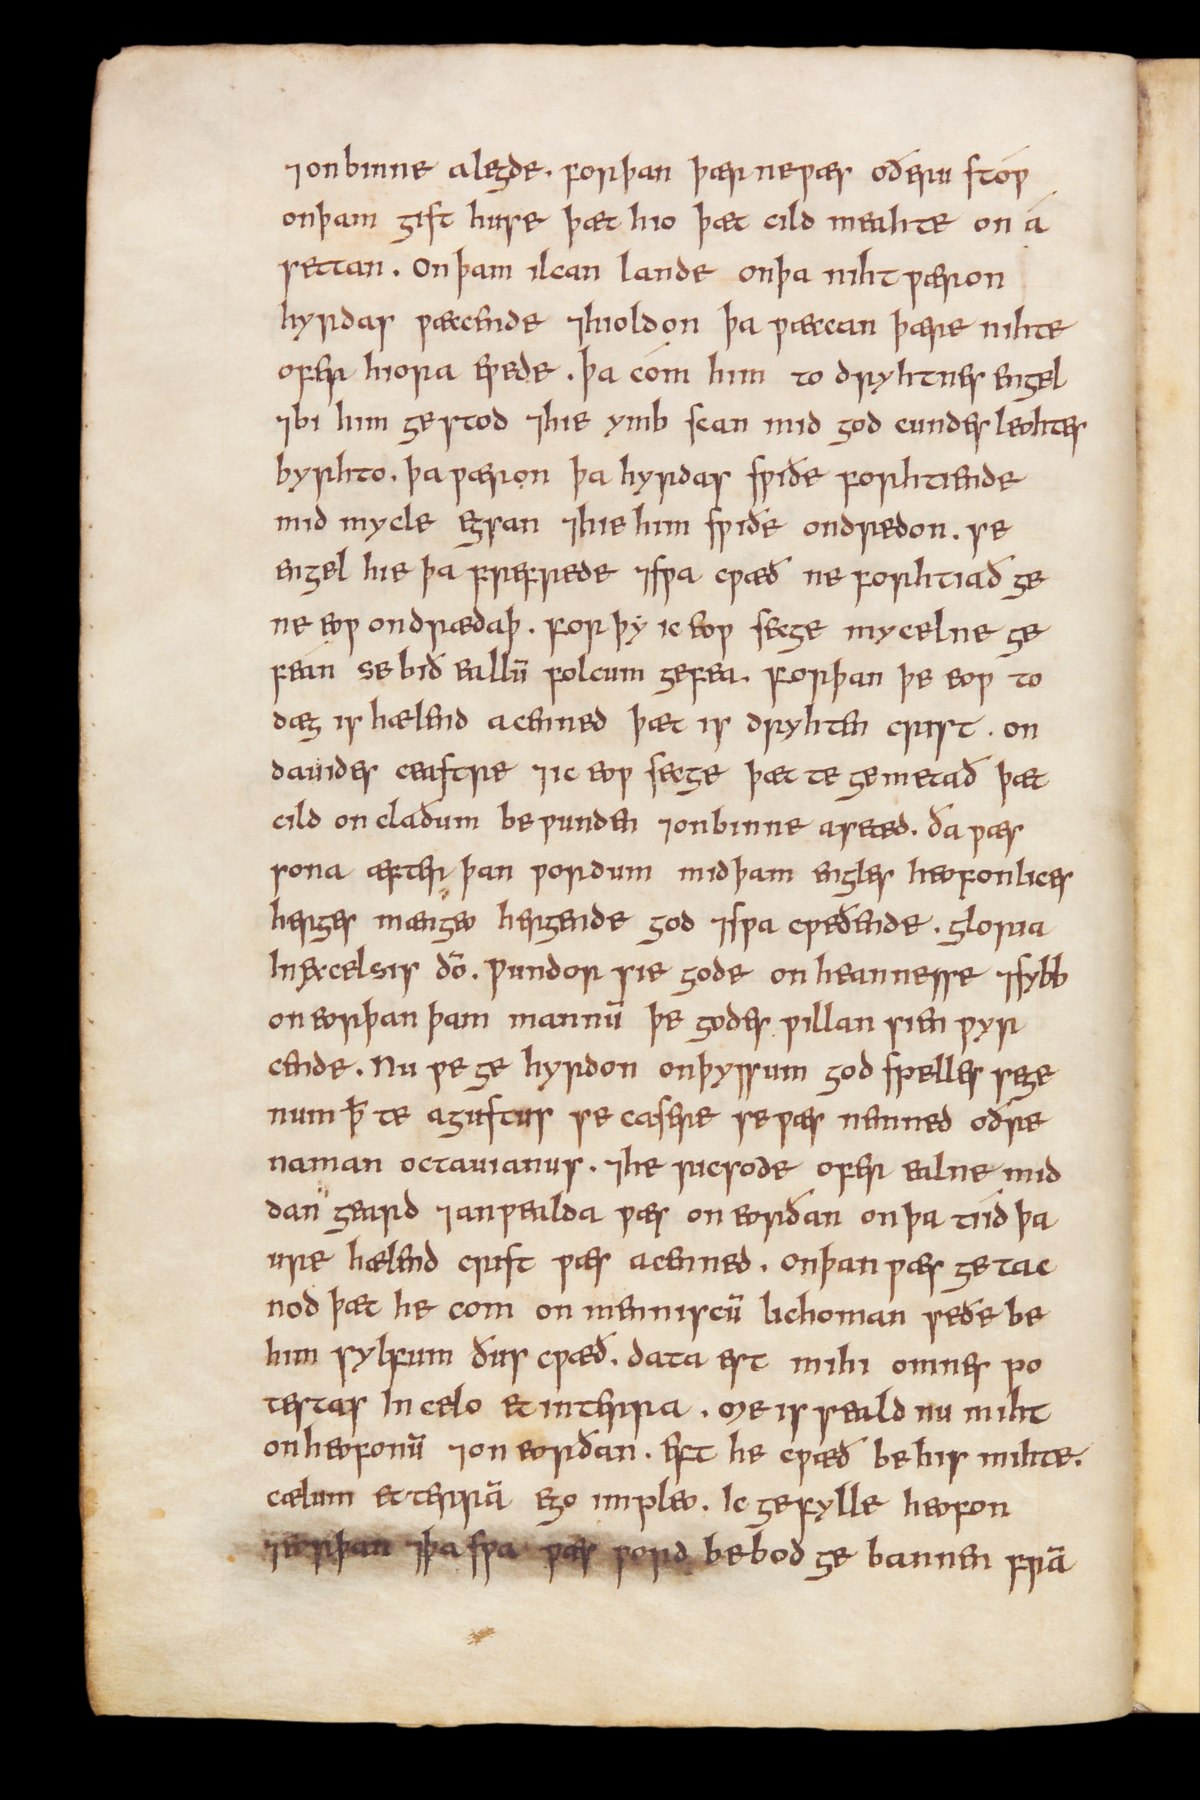 ⁊on binne alegde. forþan þær ne wæs oðeru stóƿ
onþam gist huse þæt hio þæt cild meahte on á
settan. On þam ilcan lande onþa niht ƿæron
hyrdas ƿæcende ⁊hioldon þa ƿæccan þære nihte
ofer hiora eƿede. þa cóm him to dryhtnes engel
⁊bi him gestod ⁊hie ymb scan mid god cundes leohtes
byrhto. þa ƿæron þa hyrdas sƿiðe forhtiende
mid mycle egsan ⁊hie him sƿiðe ondredon. se
engel hie þa frefrede ⁊sƿa cƿæð ne forhtiað ge
ne eoƿ ondrædaþ. for þy ic eoƿ secge mycelne ge
feán se bið eallū folcum gefea. forþan þe eoƿ to
dæg is hælend acenned þæt is dryhten crist. on
dauides ceastre ⁊ic eoƿ secge þæt te gemetað þæt
cild on claðum be ƿunden ⁊on binne aseted. ða ƿæs
sona æfter þan ƿordum mid þam engles heofonlices
herges mængeo hergende god ⁊sƿa cƿeðende. gloria
In excelsis dō. ƿundor sie gode on heannesse ⁊sybb
on eorþan þam mannū þe godes ƿillan sien ƿyr
cende. Nu ƿe ge hyrdon onþyssum god spelles sege
num ꝥ te agustus se casere se ƿæs nemned oðre
naman octauianus. ⁊he ricsode ofer ealne mid
dan geard ⁊anƿealda ƿæs on eorðan on þa tiid þa
ure hælend crist ƿæs acenned. On þan ƿæs getac
nod þæt he com on menniscū lichoman seðe be
him sylfum ðus cƿæð. data est mihi omnes po
testas In celo et in terra. Me is seald nu miht
on heofonū ⁊on eorðan. eft he cƿæð be his mihte.
cælum et terrā ego impleo. Ic gefylle heofon
⁊eorþan ⁊þa sƿa ƿæs ƿord bebod ge bannen frā